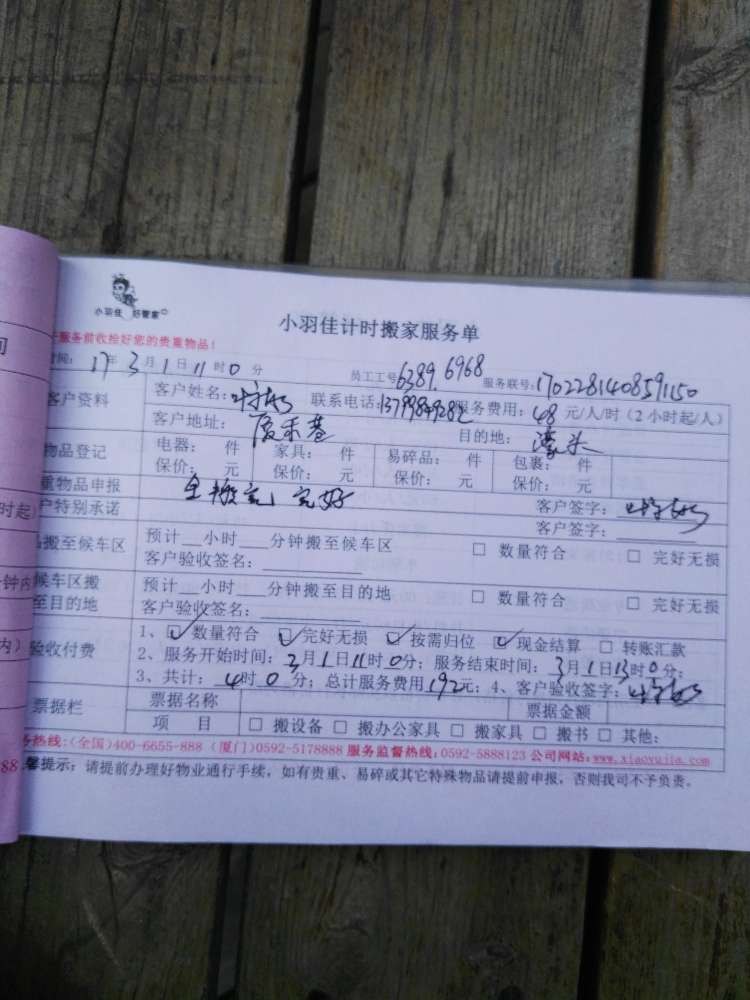 小羽佳 好管家
小羽佳计时搬家服务单
服务前收拾好您的贵重物品!
时间: 17年3月1日11时0分 员工工号6389. 6968 服务联号:1702281408591150
客户资料 客户姓名: 联系电话:13799849282 服务费用: 48元/人/时(2小时起/人)
客户地址: 目的地:
物品登记 电器: 件 家具: 件 易碎品: 件 包裹: 件
保价: 元 保价: 元 保价: 元 保价: 元
重物品申报 完好 客户签字:
户特别承诺 客户签字:
搬至候车区 预计__小时___分钟搬至候车区 □ 数量符合 □ 完好无损
客户验收签名:
候车区搬 预计__小时___分钟搬至目的地 □ 数量符合 □ 完好无损
至目的地 客户验收签名:
验收付费 1、☑数量符合 ☑完好无损 ☑按需归位 ☑现金结算 □ 转账汇款
2、服务开始时间: 3月1日11时0分; 服务结束时间: 3月1日13时0分;
3、共计: 4时0分; 总计服务费用192元; 4、客户验收签字:
票据栏 票据名称 票据金额
项 目 □ 搬设备 □ 搬办公家具 □ 搬家具 □ 搬书 □ 其他:
务热线:(全国)400-6655-888 (厦门)0592-5178888 服务监督热线:0592-5888123 公司网站:www.xiaoyujia.com
馨提示: 请提前办理好物业通行手续, 如有贵重、易碎或其它特殊物品请提前申报, 否则我司不予负责。